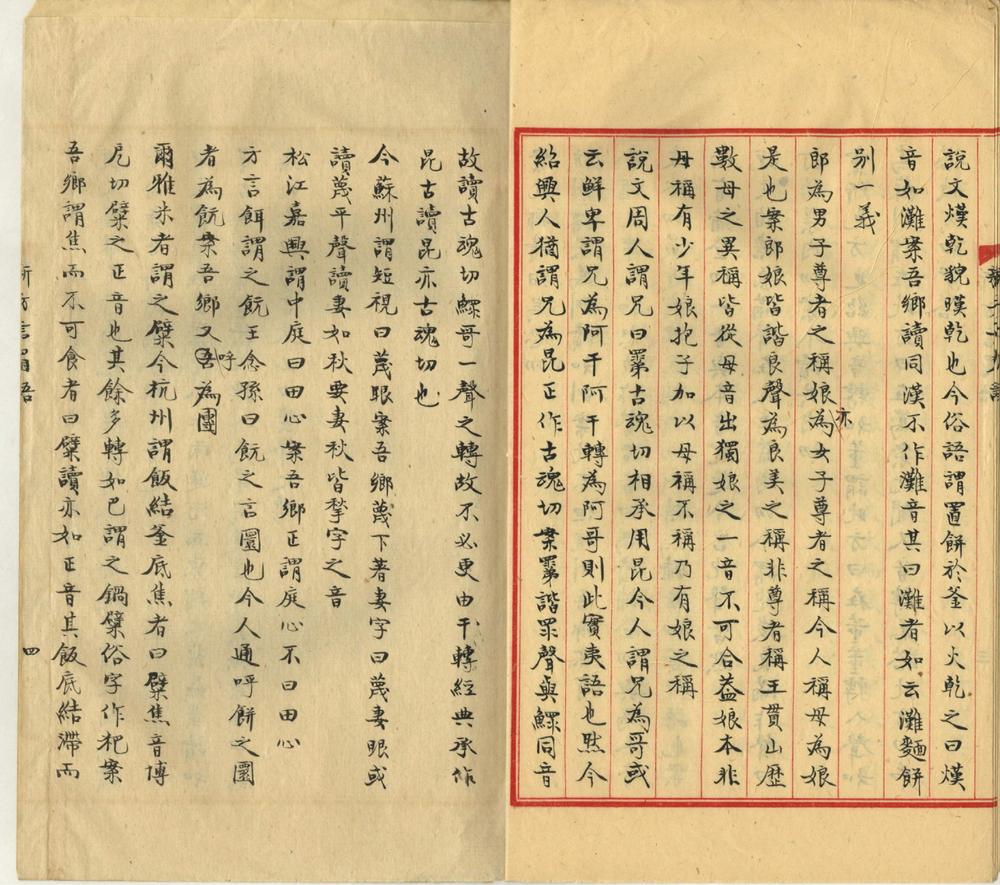 說文熯乾貌暵乾也今俗語謂置餅於釜以火乾之曰熯
音如灘案吾鄉讀同漢不作灘音其曰灘者如云灘麵餅
別一義
郎為男子尊者之稱娘亦為女子尊者之稱今人稱母為娘
是也案郎娘皆諧良聲為良美之稱非尊者稱王貫山歷
數母之異稱皆從母音出獨娘之一音不可合葢娘本非
母稱有少年娘抱子加以母稱不稱乃有娘之稱
說文周人謂兄曰𥊽古魂切相承用昆今人謂兄為哥或
云鮮卑謂兄為阿干阿干轉為阿哥則此實夷語也然今
紹興人猶謂兄為昆正作古魂切案𥊽諧眔聲與鰥同音
故讀古魂切鰥哥一聲之轉故不必更由干轉經典承作
昆古讀昆亦古魂切也
今蘇州謂短視曰䁾眼案吾鄉䁾下著妻字曰䁾妻眼或
讀䁾平聲讀妻如秋要妻秋皆揫字之音
松江嘉興謂中庭曰田心案吾鄉正謂庭心不曰田心
方言餌謂之飥王念孫曰飥之言圜也今人通呼餅之圜
者為飥案吾鄉又呼為團
爾雅米者謂之糪今杭州謂飯結釜底焦者曰糪焦音博
戹切糪之正音也其餘多轉如巴謂之鍋糪俗字作粑案
吾鄉謂焦而不可食者曰糪讀亦如正音其飯底結滯而
新方言眉語
四